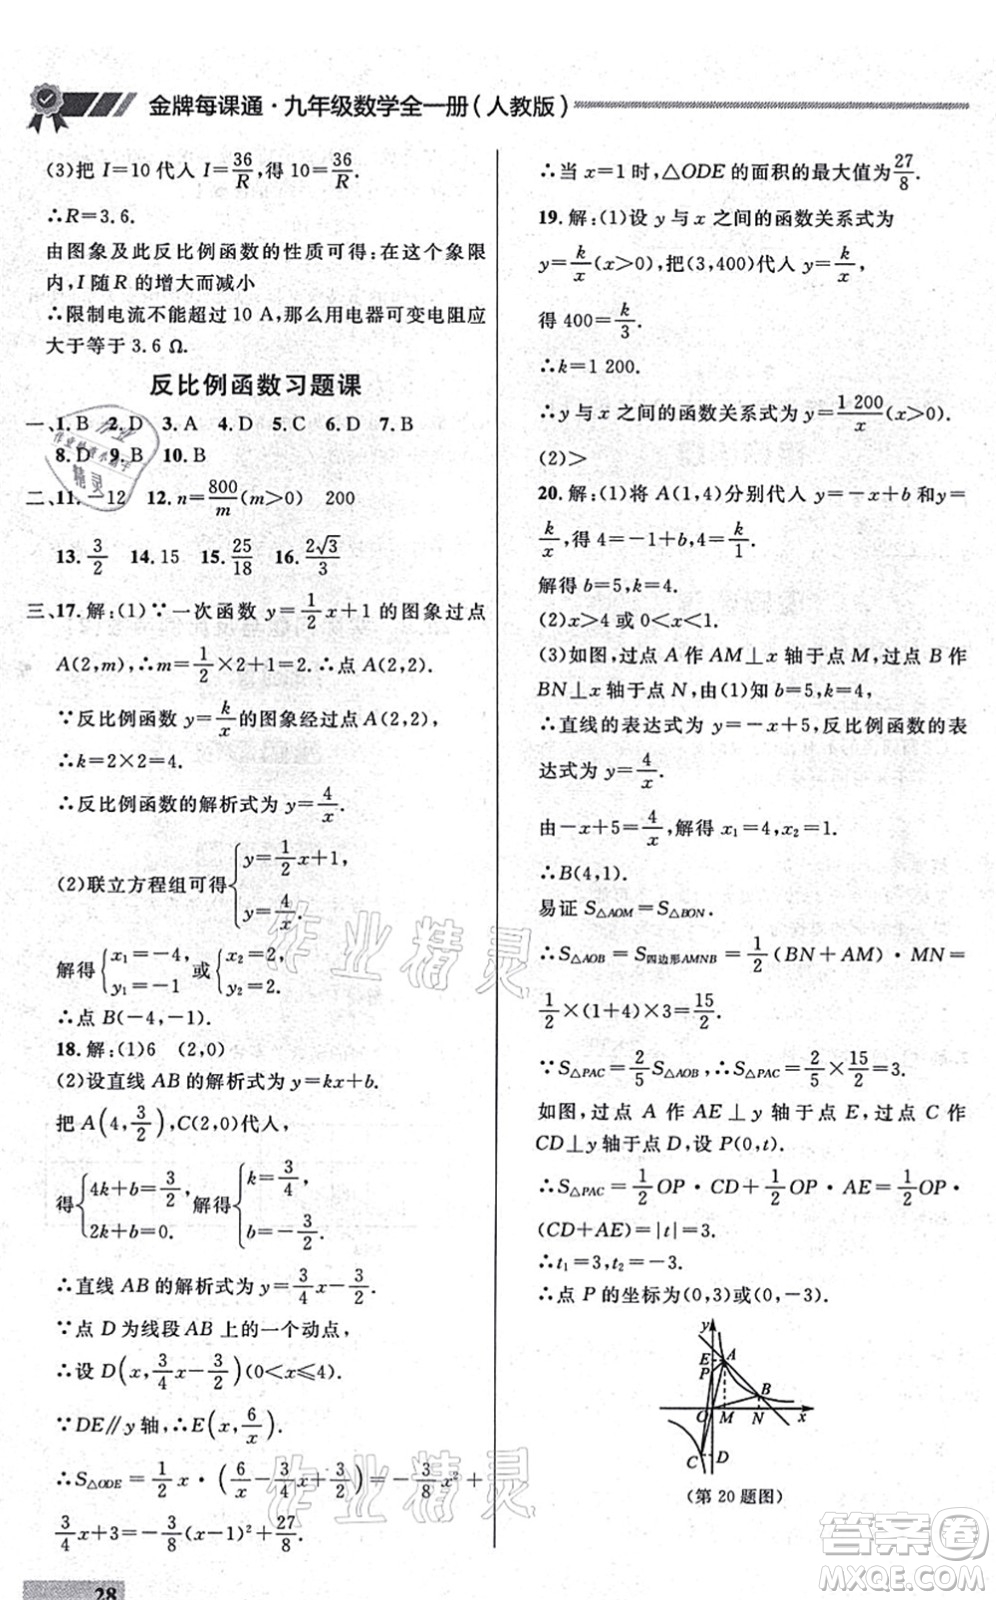 金牌每课通·九年级数学全一册(人教版)
(3)把 I=10 代入 I=36/R,得 10=36/R.
∴R=3.6.
由图象及此反比例函数的性质可得:在这个象限
内,I 随 R 的增大而减小
∴限制电流不能超过 10 A,那么用电器可变电阻应
大于等于 3.6 Ω.
反比例函数习题课
一、1.B 2.D 3.A 4.D 5.C 6.D 7.B
8.D 9.B 10.B
二、11.-12 12.n=800/m(m>0) 200
13.3/2 14.15 15.25/18 16.2√3/3
三、17.解:(1)∵一次函数 y=1/2x+1 的图象过点
A(2,m),∴m=1/2×2+1=2.∴点 A(2,2).
∵反比例函数 y=k/x的图象经过点 A(2,2),
∴k=2×2=4.
∴反比例函数的解析式为 y=4/x.
(2)联立方程组可得{y=1/2x+1, y=4/x.
解得{x₁=-4, y₁=-1 或{x₂=2, y₂=2.
∴点 B(-4,-1).
18.解:(1)6 (2,0)
(2)设直线 AB 的解析式为 y=kx+b.
把 A(4,3/2),C(2,0)代入,
得{4k+b=3/2, 2k+b=0. 解得{k=3/4, b=-3/2.
∴直线 AB 的解析式为 y=3/4x-3/2.
∵点 D 为线段 AB 上的一个动点,
∴设 D(x,3/4x-3/2)(0<x≤4).
∵DE∥y 轴,∴E(x,6/x).
∴S△ODE=1/2x·(6/x-3/4x+3/2)=-3/8x²+
3/4x+3=-3/8(x-1)²+27/8.
∴当 x=1 时,△ODE 的面积的最大值为27/8.
19.解:(1)设 y 与 x 之间的函数关系式为
y=k/x(x>0),把(3,400)代入 y=k/x,
得 400=k/3.
∴k=1 200.
∴y 与 x 之间的函数关系式为 y=1 200/x(x>0).
(2)>
20.解:(1)将 A(1,4)分别代入 y=-x+b 和y=
k/x,得 4=-1+b,4=k/1.
解得 b=5,k=4.
(2)x>4 或 0<x<1.
(3)如图,过点 A 作 AM⊥x 轴于点 M,过点 B 作
BN⊥x 轴于点 N,由(1)知 b=5,k=4,
∴直线的表达式为 y=-x+5,反比例函数的表
达式为 y=4/x.
由-x+5=4/x,解得 x₁=4,x₂=1.
∴B(4,1).
易证 S△AOM=S△BON.
∴S△AOB=S四边形AMNB=1/2(BN+AM)·MN=
1/2×(1+4)×3=15/2.
∵S△PAC=2/5S△AOB,∴S△PAC=2/5×15/2=3.
如图,过点 A 作 AE⊥y 轴于点 E,过点 C 作
CD⊥y 轴于点 D,设 P(0,t).
∴S△PAC=1/2OP·CD+1/2OP·AE=1/2OP·
(CD+AE)=|t|=3.
∴t₁=3,t₂=-3.
∴点 P 的坐标为(0,3)或(0,-3).
y
E A
P
B
O M N x
C D
(第 20 题图)
作业精灵
作业精灵
答案卷
MXQE.COM
28